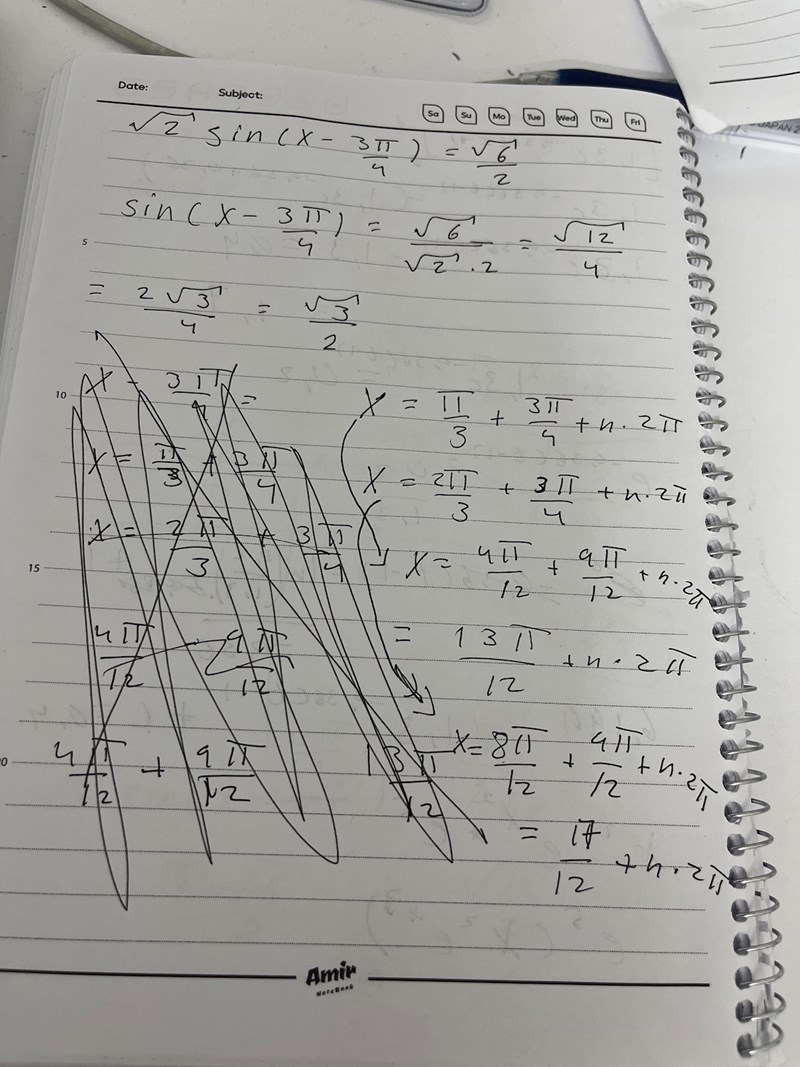 Date: Subject:
Sa Su Mo Tue Wed Thu Fri
√2 sin(x - 3π/4) = √6/2
sin(x - 3π/4) = √6/(√2 · 2) = √12/4
5
= 2√3/4 = √3/2
10
x - 3π/4 =
x = π/3 + 3π/4
x = 2π/3 + 3π/4
15
4π/12 9π/12
4π/12 + 9π/12 13π/12
x = π/3 + 3π/4 + n · 2π
x = 2π/3 + 3π/4 + n · 2π
x = 4π/12 + 9π/12 + n · 2π
= 13π/12 + n · 2π
x = 8π/12 + 9π/12 + n · 2π
= 17/12 + n · 2π
Amir
NoteBook